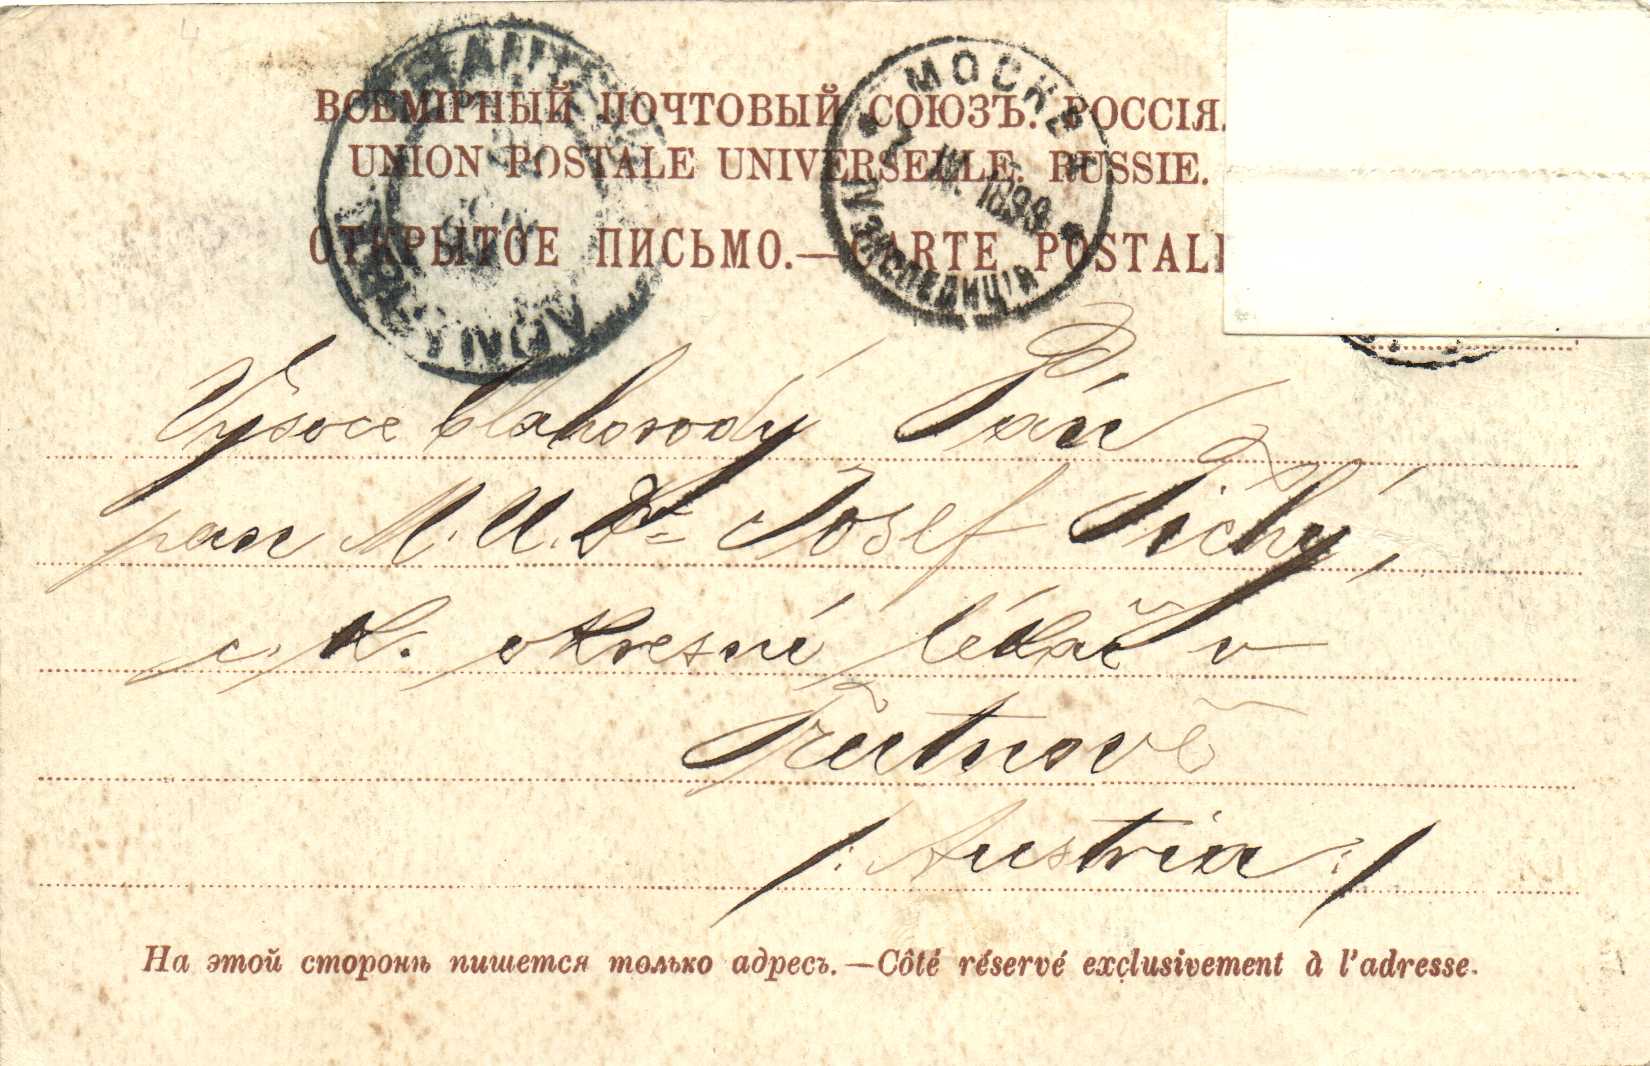 ВСЕМІРНЫЙ ПОЧТОВЫЙ СОЮЗЪ. РОССІЯ.
UNION POSTALE UNIVERSELLE. RUSSIE.
ОТКРЫТОЕ ПИСЬМО.—CARTE POSTALE
МОСКВА
1899
ЭКСПЕДИЦІЯ
Vysoce blahorodý Pán
pan M. U. Dr. Josef Tichý,
c. k. okresní lékař v
Trutnově
/: Austria :/
На этой сторонѣ пишется только адресъ.—Côté réservé exclusivement à l'adresse.